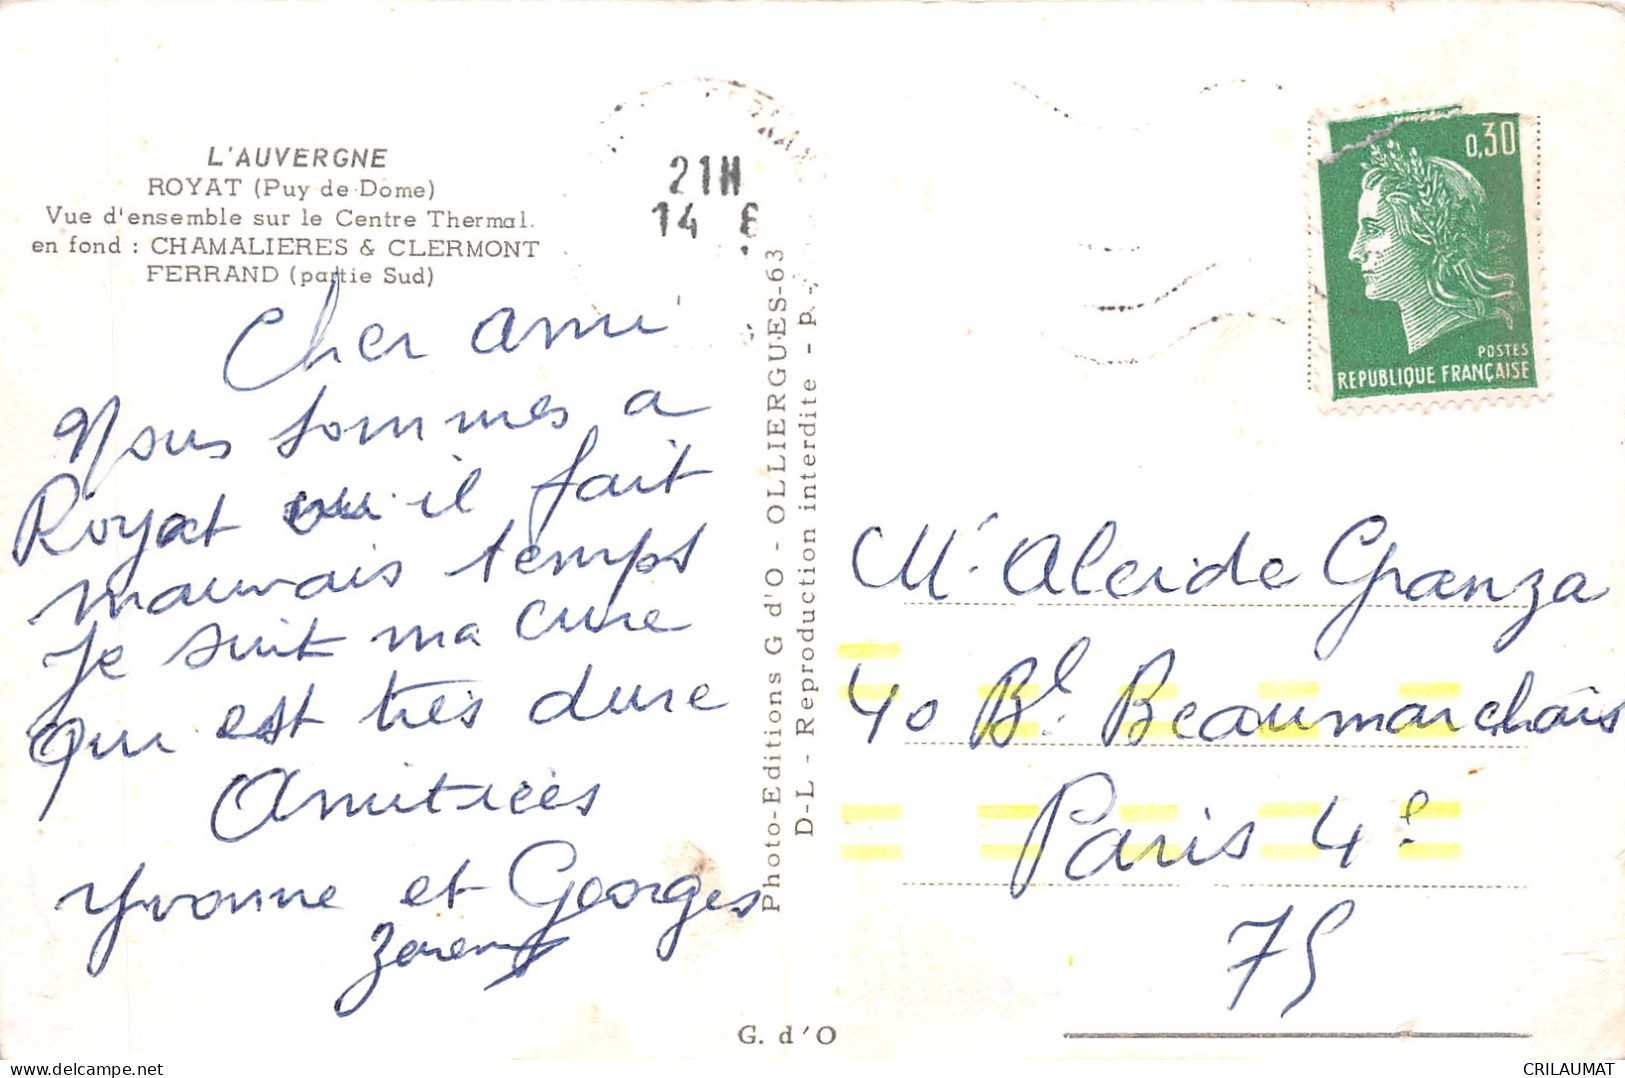 L'AUVERGNE
ROYAT (Puy de Dome)
Vue d'ensemble sur le Centre Thermal.
en fond : CHAMALIERES & CLERMONT
FERRAND (partie Sud)
21H
14 6
0,30
POSTES
REPUBLIQUE FRANÇAISE
Cher ami
Nous sommes a
Royat ou il fait
mauvais temps
Je suit ma cure
qui est très dure
Amitiées
Yvonne et Georges
Photo-Editions G d'O - OLLIERGUES-63
D-L - Reproduction interdite - p.
Mr Alcide Granza
40 Bl. Beaumarchais
Paris 4e
75
G. d'O
CRILAUMAT